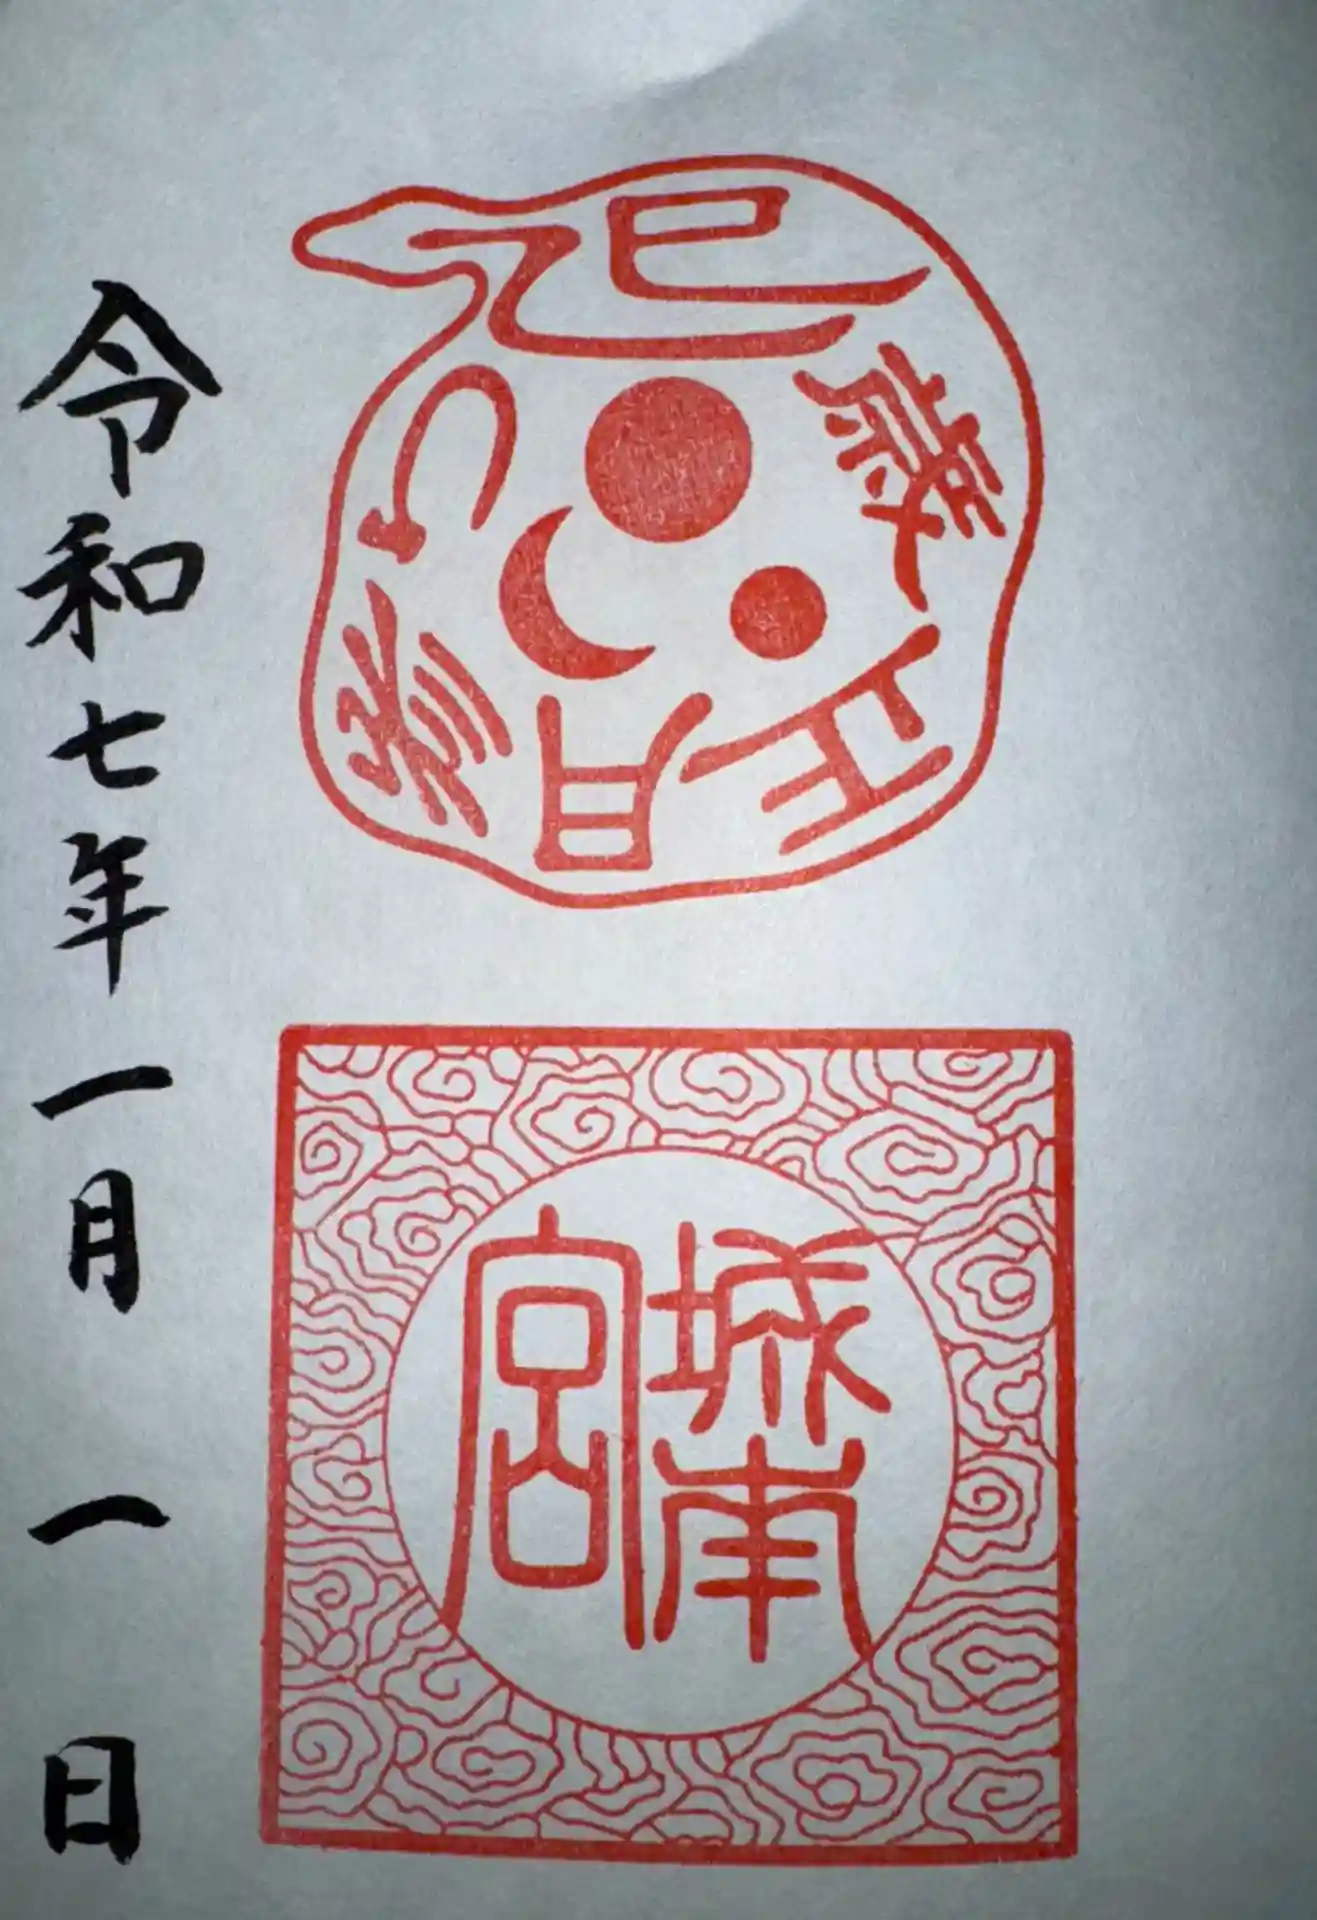 乙巳
歳
正
月
城南
宮
令和七年一月一日